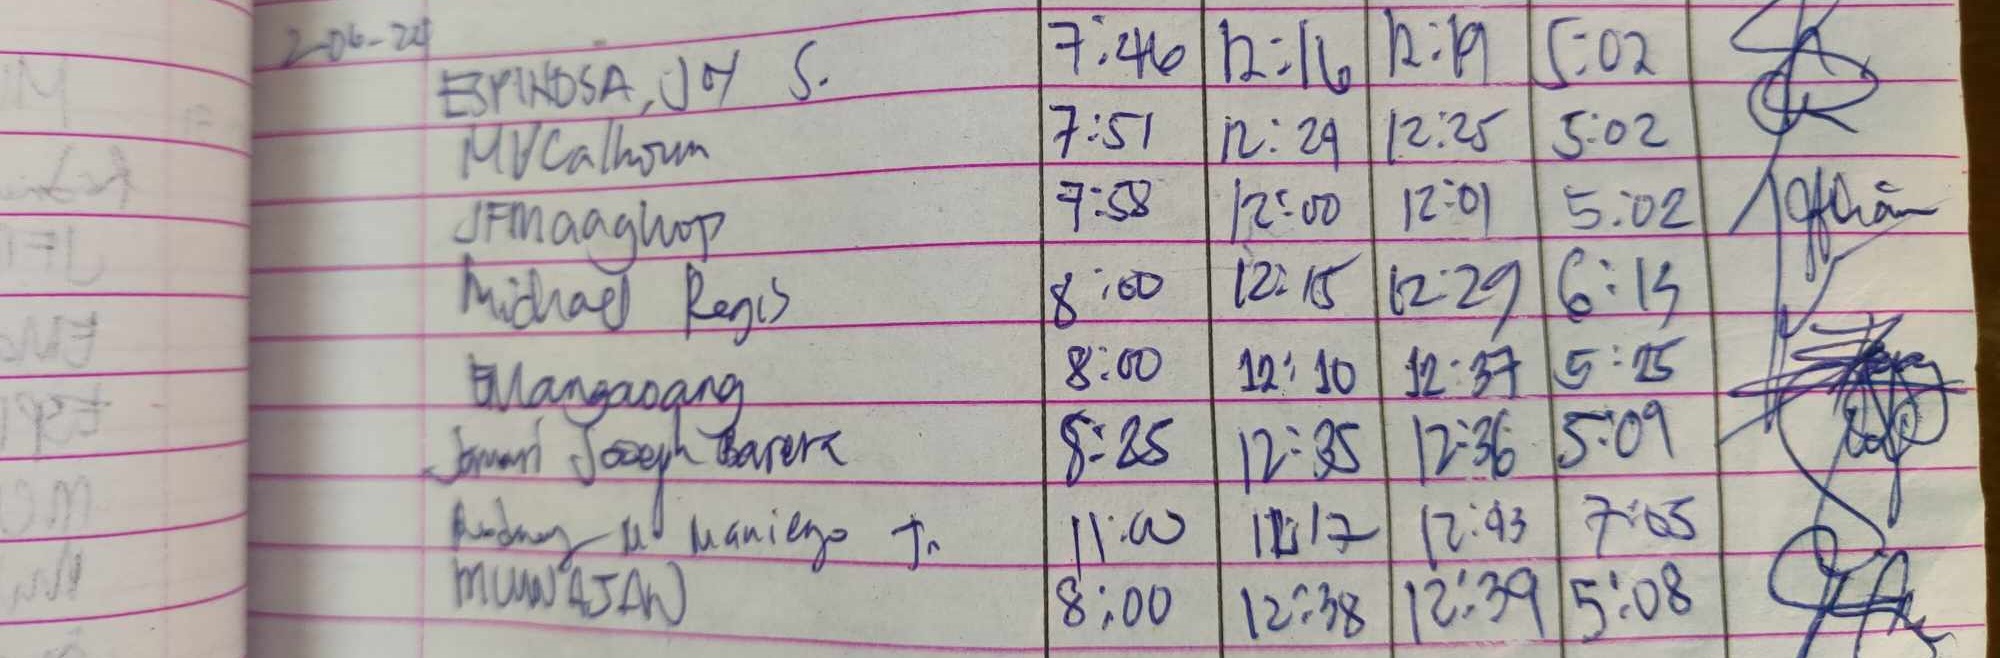 2-06-24
ESPINOSA, JOY S. 7:46 12:16 12:19 5:02
MVCalhoun 7:51 12:29 12:25 5:02
JFMaaghop 7:58 12:00 12:01 5:02
Michael Regis 8:00 12:15 12:29 6:15
EMangaoang 8:00 12:10 12:37 5:25
Joseph Barera 8:25 12:35 12:36 5:09
Rodney M Maniego Jr. 11:00 12:17 12:43 7:05
8:00 12:38 12:39 5:08